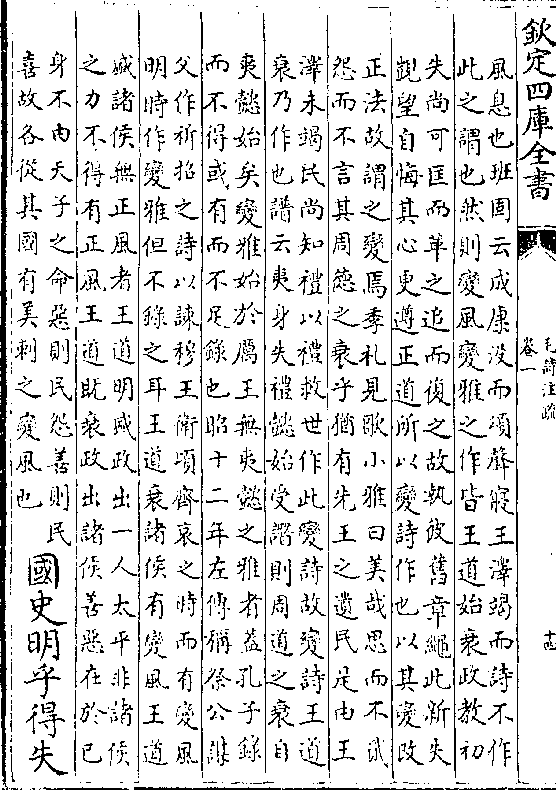 欽定四庫全書
毛詩注疏
卷一
十四
風息也班固云成康没而頌聲寢王澤竭而詩不作
此之謂也然則變風變雅之作皆王道始衰政教初
失尚可匡而革之追而復之故執彼舊章繩此新失
覬望自悔其心更遵正道所以變詩作也以其變改
正法故謂之變焉季札見歌小雅曰美哉思而不貳
怨而不言其周德之衰乎猶有先王之遺民是由王
澤未竭民尚知禮以禮救世作此變詩故變詩王道
衰乃作也譜云夷身失禮懿始受譖則周道之衰自
夷懿始矣變雅始於厲王無夷懿之雅者葢孔子録
而不得或有而不足録也昭十二年左傳稱祭公謀
父作祈招之詩以諫穆王衛頃齊哀之時而有變風
明時作變雅但不錄之耳王道衰諸侯有變風王道
盛諸侯無正風者王道明盛政出一人太平非諸侯
之力不得有正風王道既衰政出諸侯善惡在於己
身不由天子之命惡則民怨善則民
喜故各從其國有美刺之變風也
國史明乎得失